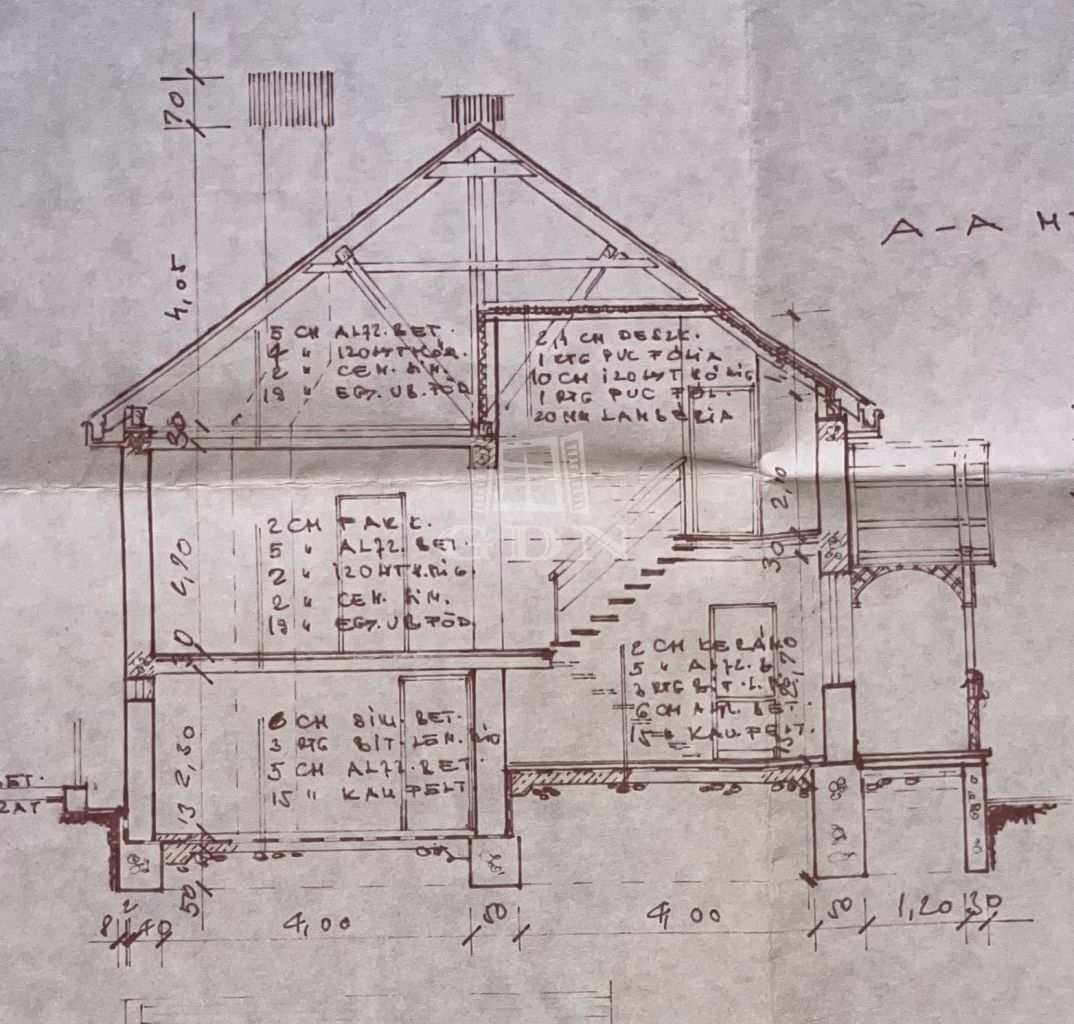 70
A-A
4,05
5 CM ALJZ.BET.
4 " IZOLYTKÓR.
2 " CEM. SIM.
19 " EGY. UB. FÖD
2,4 CM DESZK.
1 RTG PVC FÓLIA
10 CM IZOLYT KÖRIG
1 RTG PVC FÓL.
20 MM LAMBÉRIA
30
2,10
GDN
2 CM PARK.
5 " ALJZ. BET.
2 "
2 " CEM. SIM.
19 " EGY. UB FÖD.
30
30
2 CM KERÁM
5 " ALJZ. B
3 RTG BIT. L.
6 CM ALJZ. BET.
15 " KAV FELT.
6 CM SIM. BET.
3 RTG BIT. LEM.
5 CM ALJZ. BET
15 " KAV FELT
2,30
13
BET.
ZAT
50
8 2 40 4,00 50 4,00 50 1,20 30